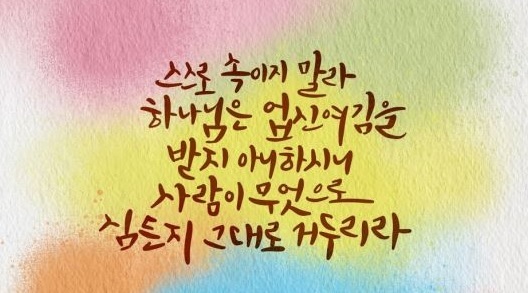 스스로 속이지 말라
하나님은 업신여김을
받지 아니하시나니
사람이 무엇으로
심든지 그대로 거두리라